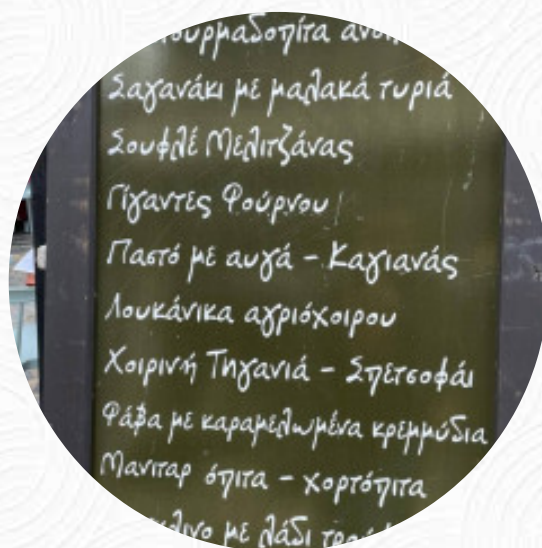 Σαγανάκι με μαλακά τυριά
Σουφλέ Μελιτζάνας
Γίγαντες Φούρνου
Παστό με αυγά - Καγιανάς
Λουκάνικα αγριόχοιρου
Χοιρινή Τηγανιά - Σπετσοφάι
Φάβα με καραμελωμένα κρεμμύδια
Μανιταρ όπιτα - χορτόπιτα
με λάδι